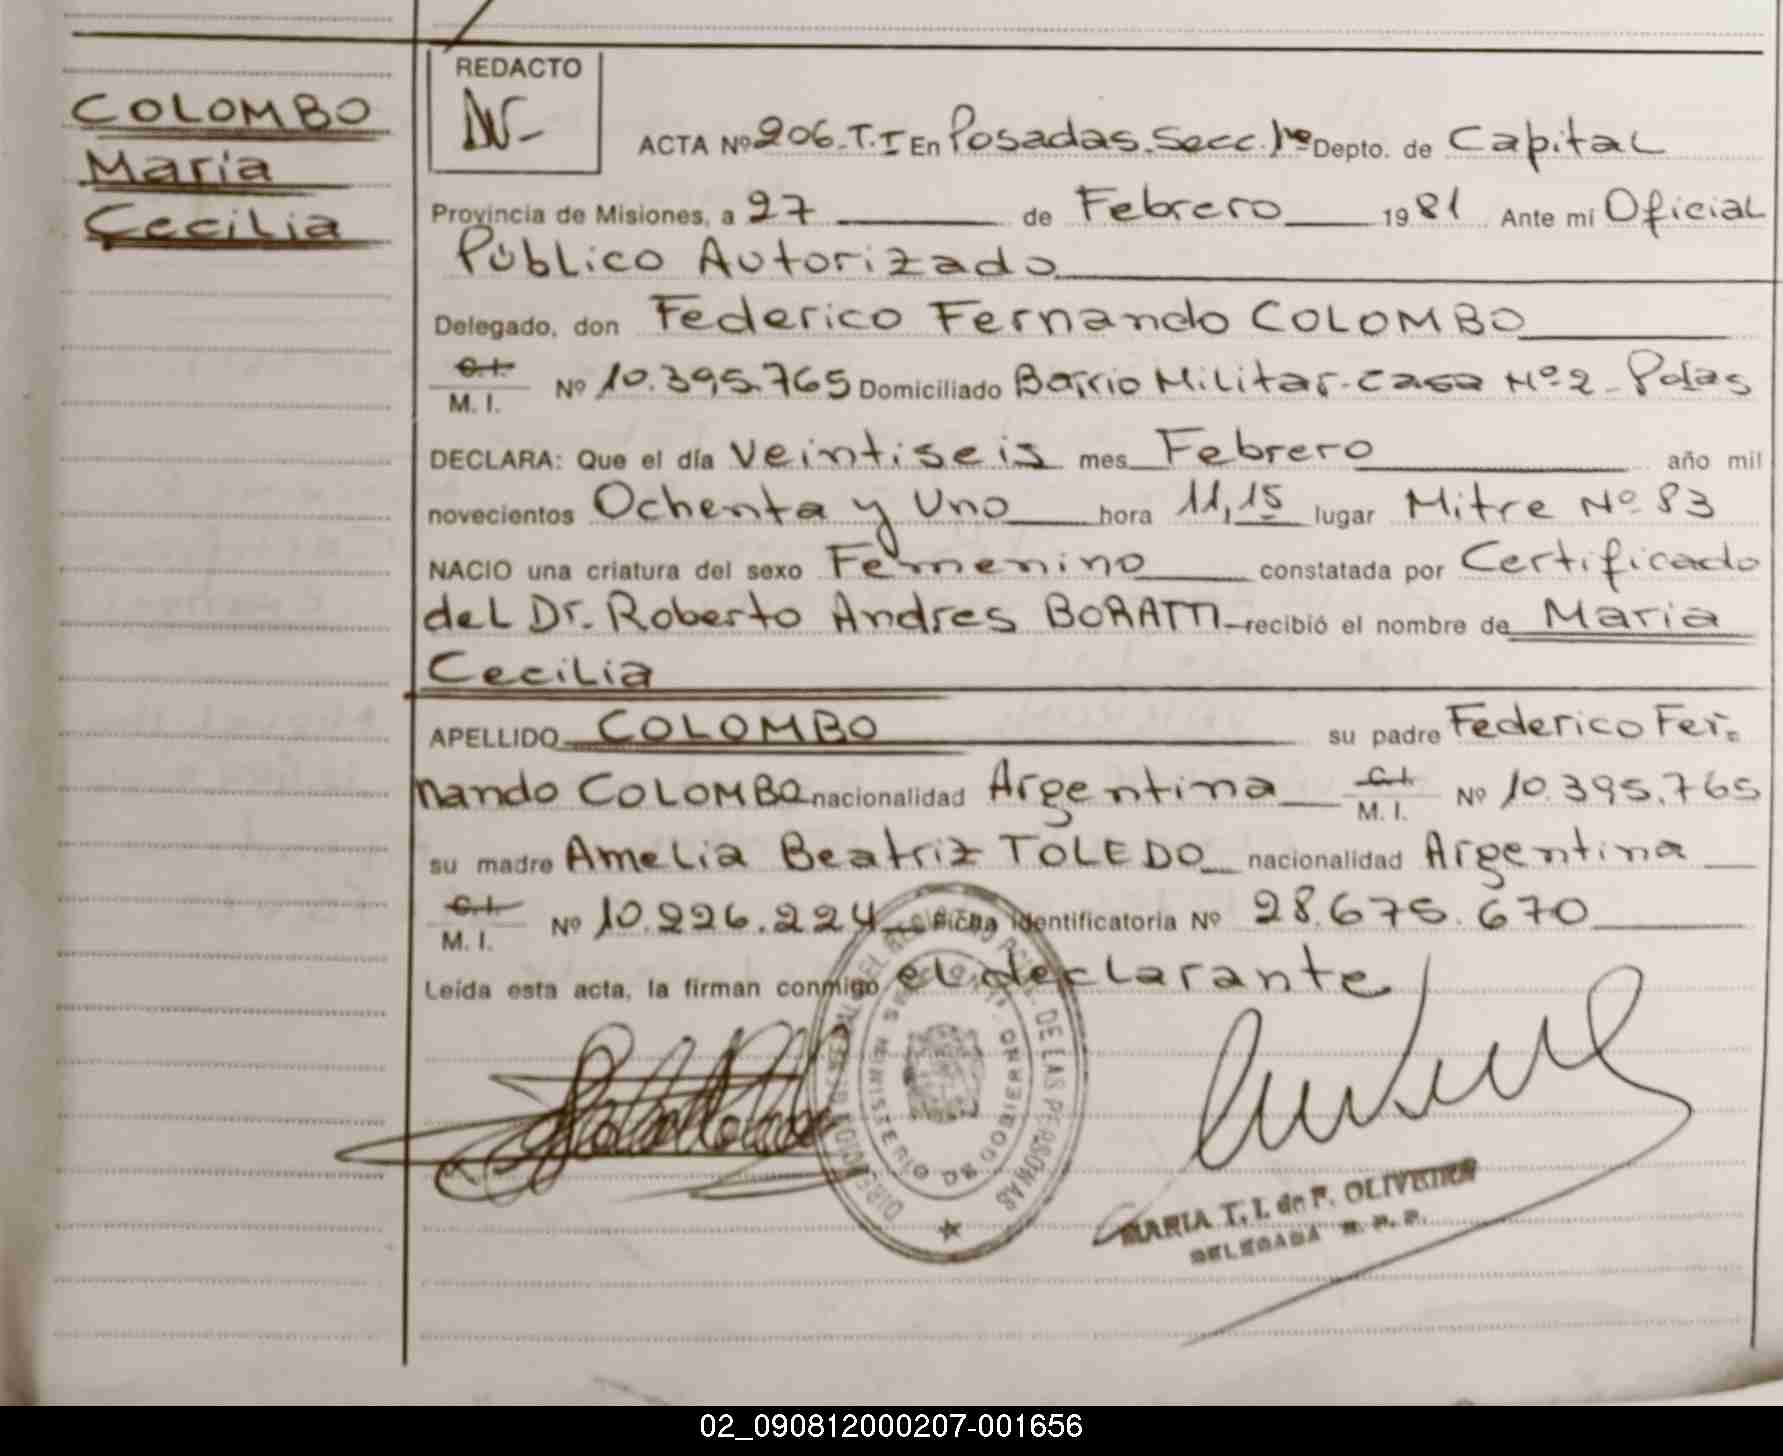 COLOMBO
Maria
Cecilia
REDACTO
ACTA Nº 206. T. I En Posadas. Secc. 1ª Depto. de Capital
Provincia de Misiones, a 27 de Febrero 1981 Ante mi Oficial
Público Autorizado
Delegado, don Federico Fernando COLOMBO
C.I.
M. I. Nº 10.395.765 Domiciliado Barrio Militar-casa Nº 2 - Pdas
DECLARA: Que el día Veintiseis mes Febrero año mil
novecientos Ochenta y Uno hora 11,15 lugar Mitre Nº 83
NACIO una criatura del sexo Femenino constatada por Certificado
del Dr. Roberto Andres BORATTI recibió el nombre de Maria
Cecilia
APELLIDO COLOMBO su padre Federico Fer-
nando COLOMBO nacionalidad Argentina C.I. M. I. Nº 10.395.765
su madre Amelia Beatriz TOLEDO nacionalidad Argentina
C.I.
M. I. Nº 10.226.224 Ficha Identificatoria Nº 28.675.670
Leída esta acta, la firman conmigo el declarante
DE LAS PERSONAS
MINISTERIO DE GOBIERNO
MARIA T. I. de F. OLIVEIRA
DELEGADA R. P. P.
02_090812000207-001656